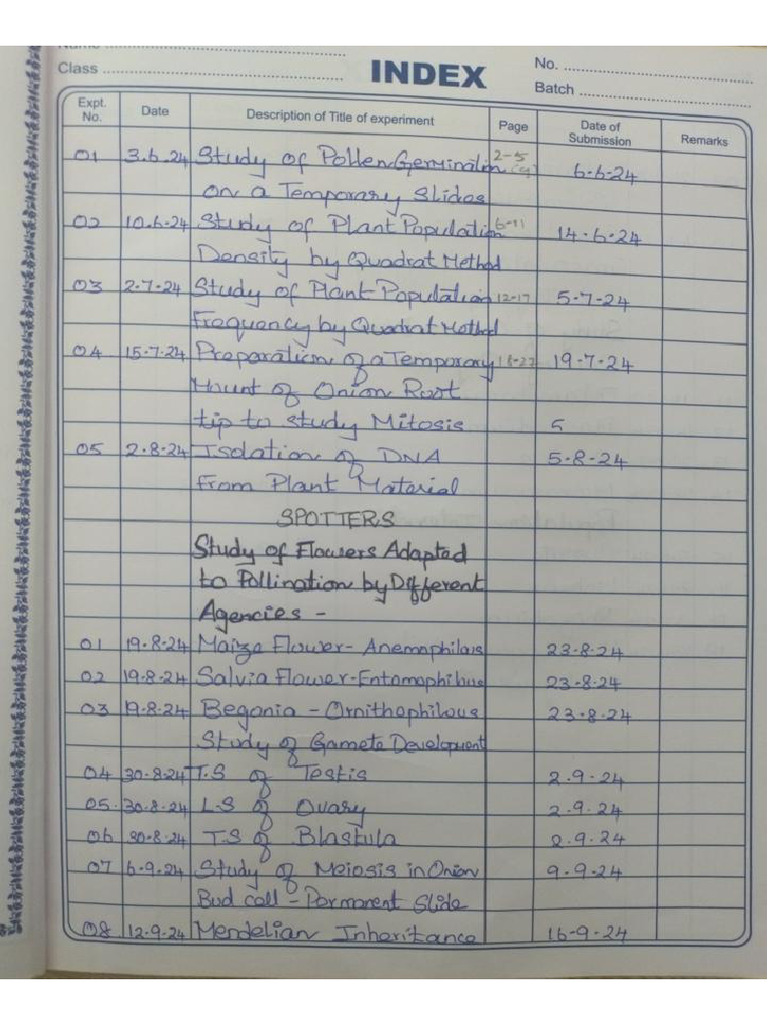 Name ........
Class ........ INDEX No. ........
Batch ........
Expt. No. Date Description of Title of experiment Page Date of Submission Remarks
01 3.6.24 Study of Pollen Germination 2-5 6.6.24
on a Temporary Slides
02 10.6.24 Study of Plant Population 6-11 14.6.24
Density by Quadrat Method
03 2.7.24 Study of Plant Population 12-17 5.7.24
Frequency by Quadrat Method
04 15.7.24 Preparation of a Temporary 18-22 19.7.24
Mount of Onion Root
tip to study Mitosis 5
05 2.8.24 Isolation of DNA 5.8.24
From Plant Material
SPOTTERS
Study of Flowers Adapted
to Pollination by Different
Agencies -
01 19.8.24 Maize Flower - Anemophilous 23.8.24
02 19.8.24 Salvia Flower - Entomophilous 23.8.24
03 19.8.24 Begonia - Ornithophilous 23.8.24
Study of Gamete Development
04 30.8.24 T.S of Testis 2.9.24
05 30.8.24 L.S of Ovary 2.9.24
06 30.8.24 T.S of Blastula 2.9.24
07 6.9.24 Study of Meiosis in Onion 9.9.24
Bud cell - Permanent Slide
08 12.9.24 Mendelian Inheritance 16-9-24